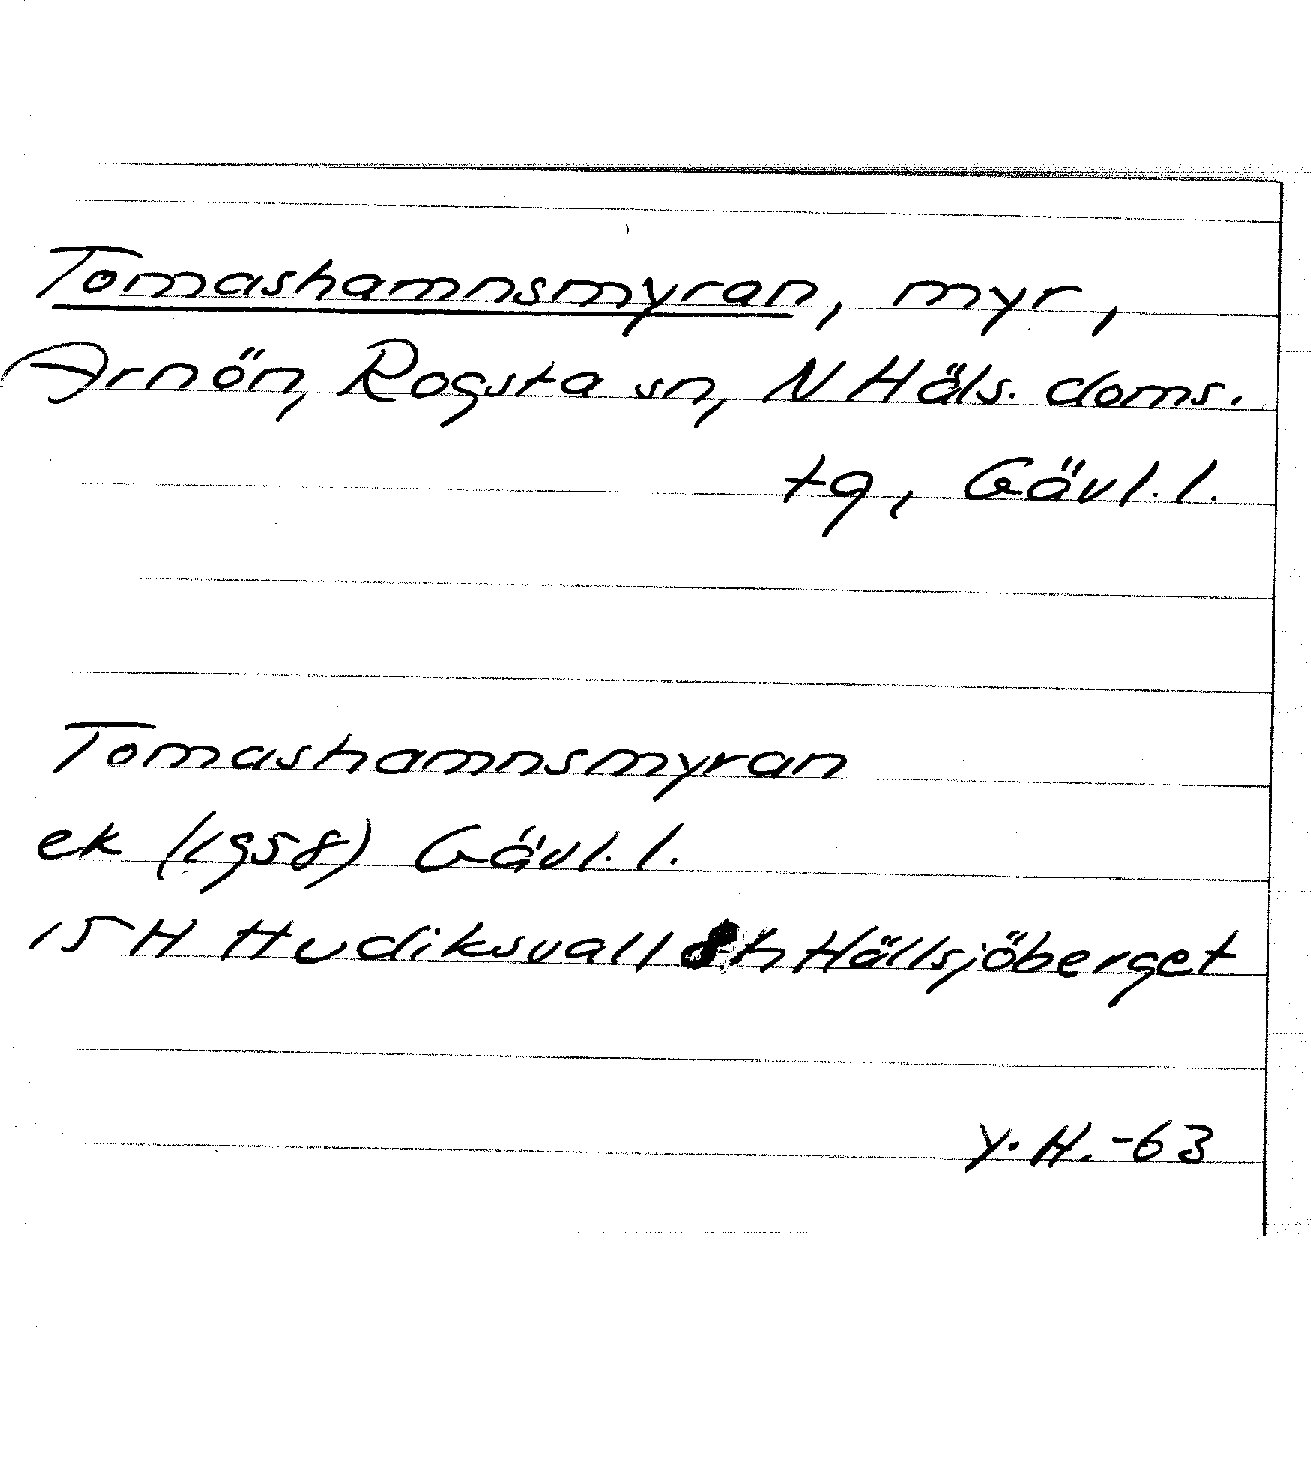 Tomashamnsmyran, myr,
Arnön, Rogsta sn, N Häls. doms.
tg, Gävl. l.
Tomashamnsmyran
ek (1958) Gävl. l.
15 H Hudiksvall 8h Hällsjöberget
Y. H. -63